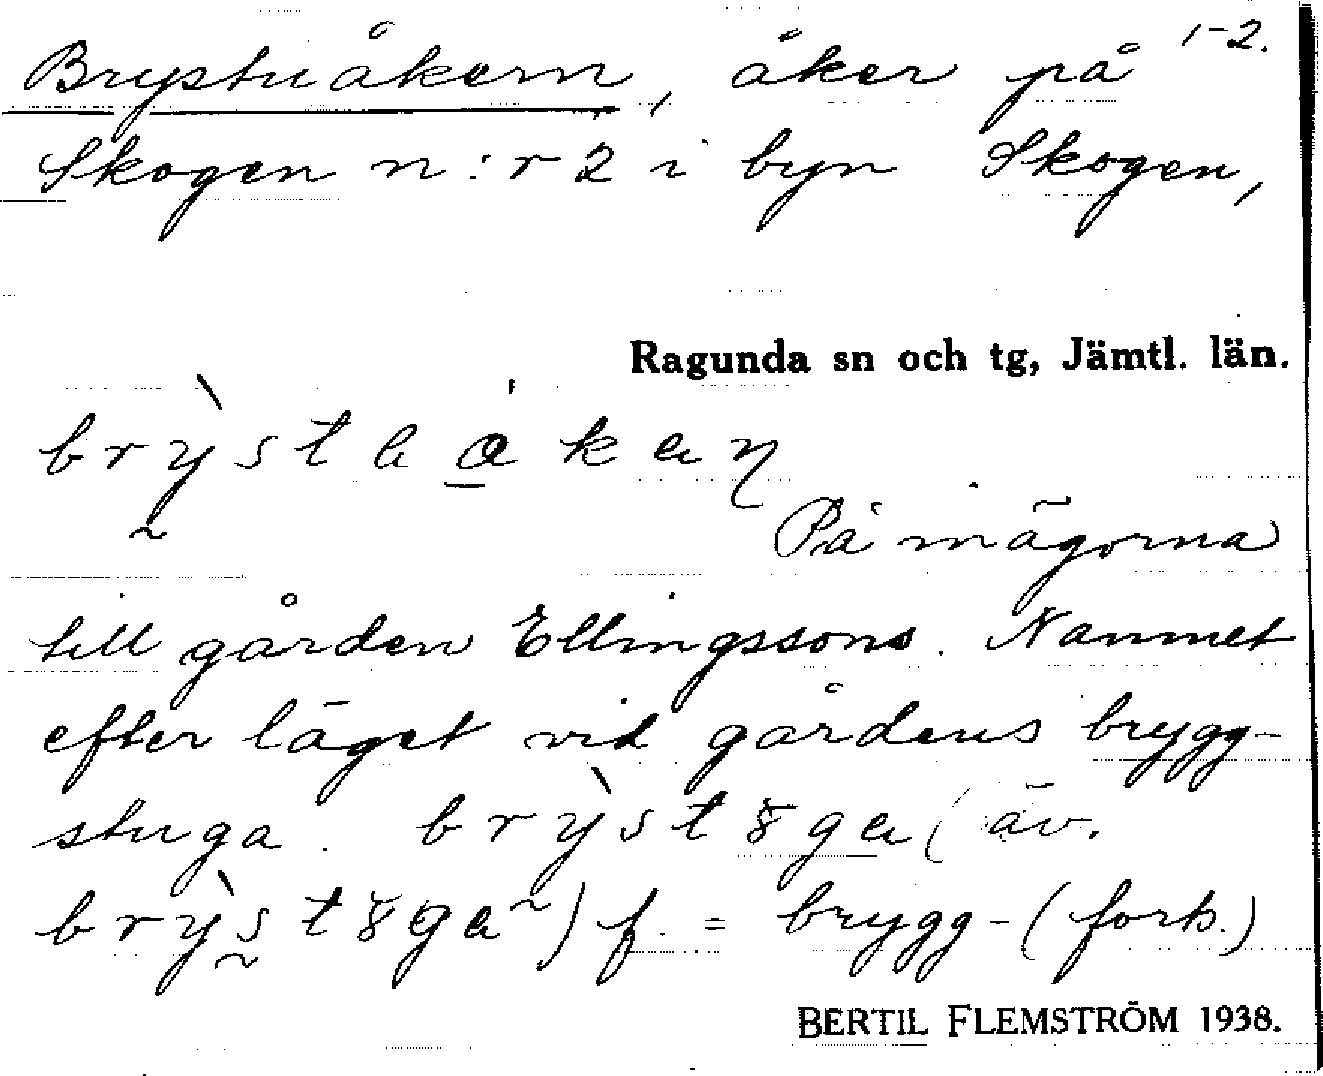 Brystuåkern, åker på 1-2.
Skogen n:r 2 i byn Skogen,
Ragunda sn och tg, Jämtl. län.
På ägorna
till gården Ellingssons. Namnet
efter läget vid gårdens brygg-
stuga. brỳstȣga (äv.
brỳstȣga) f. = brygg- (forts.)
BERTIL FLEMSTRÖM 1938.